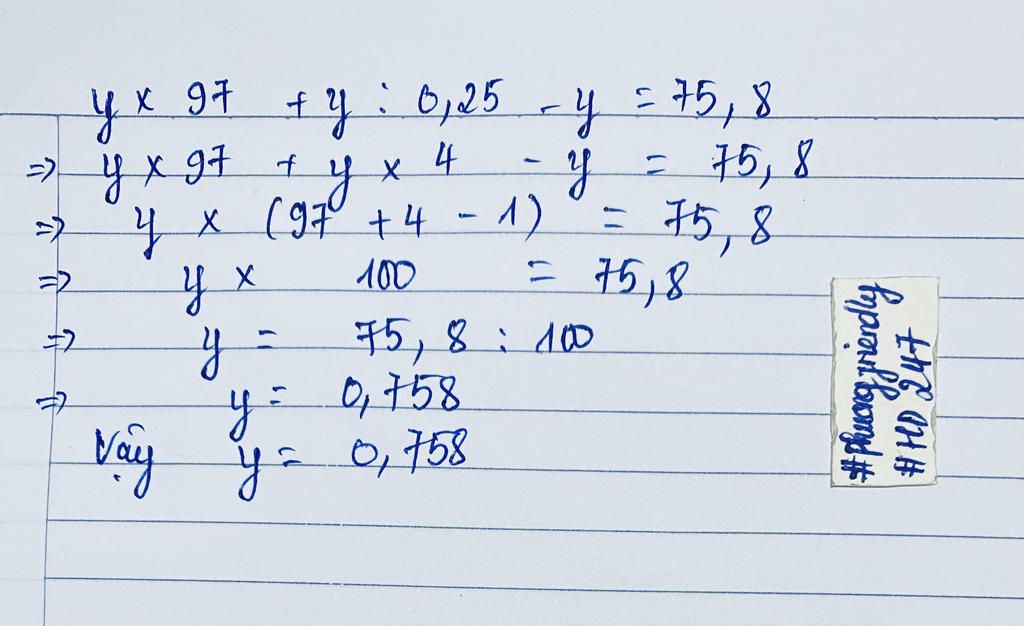 y × 97 + y : 0,25 - y = 75,8
=> y × 97 + y × 4 - y = 75,8
=> y × (97 + 4 - 1) = 75,8
=> y × 100 = 75,8
=> y = 75,8 : 100
=> y = 0,758
Vậy y = 0,758
#phuongfriendly
#HD247